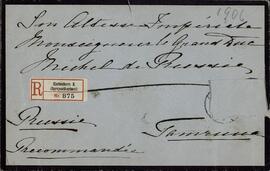 1901
Son Altesse Impériale
Monseigneur le Grand Duc
Michel de Russie
R
Karlsruhe
Nr. 875
Russie
Recommandée